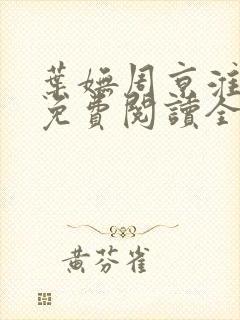 葉嫵周京淮
免費閱讀全
黃芬雀